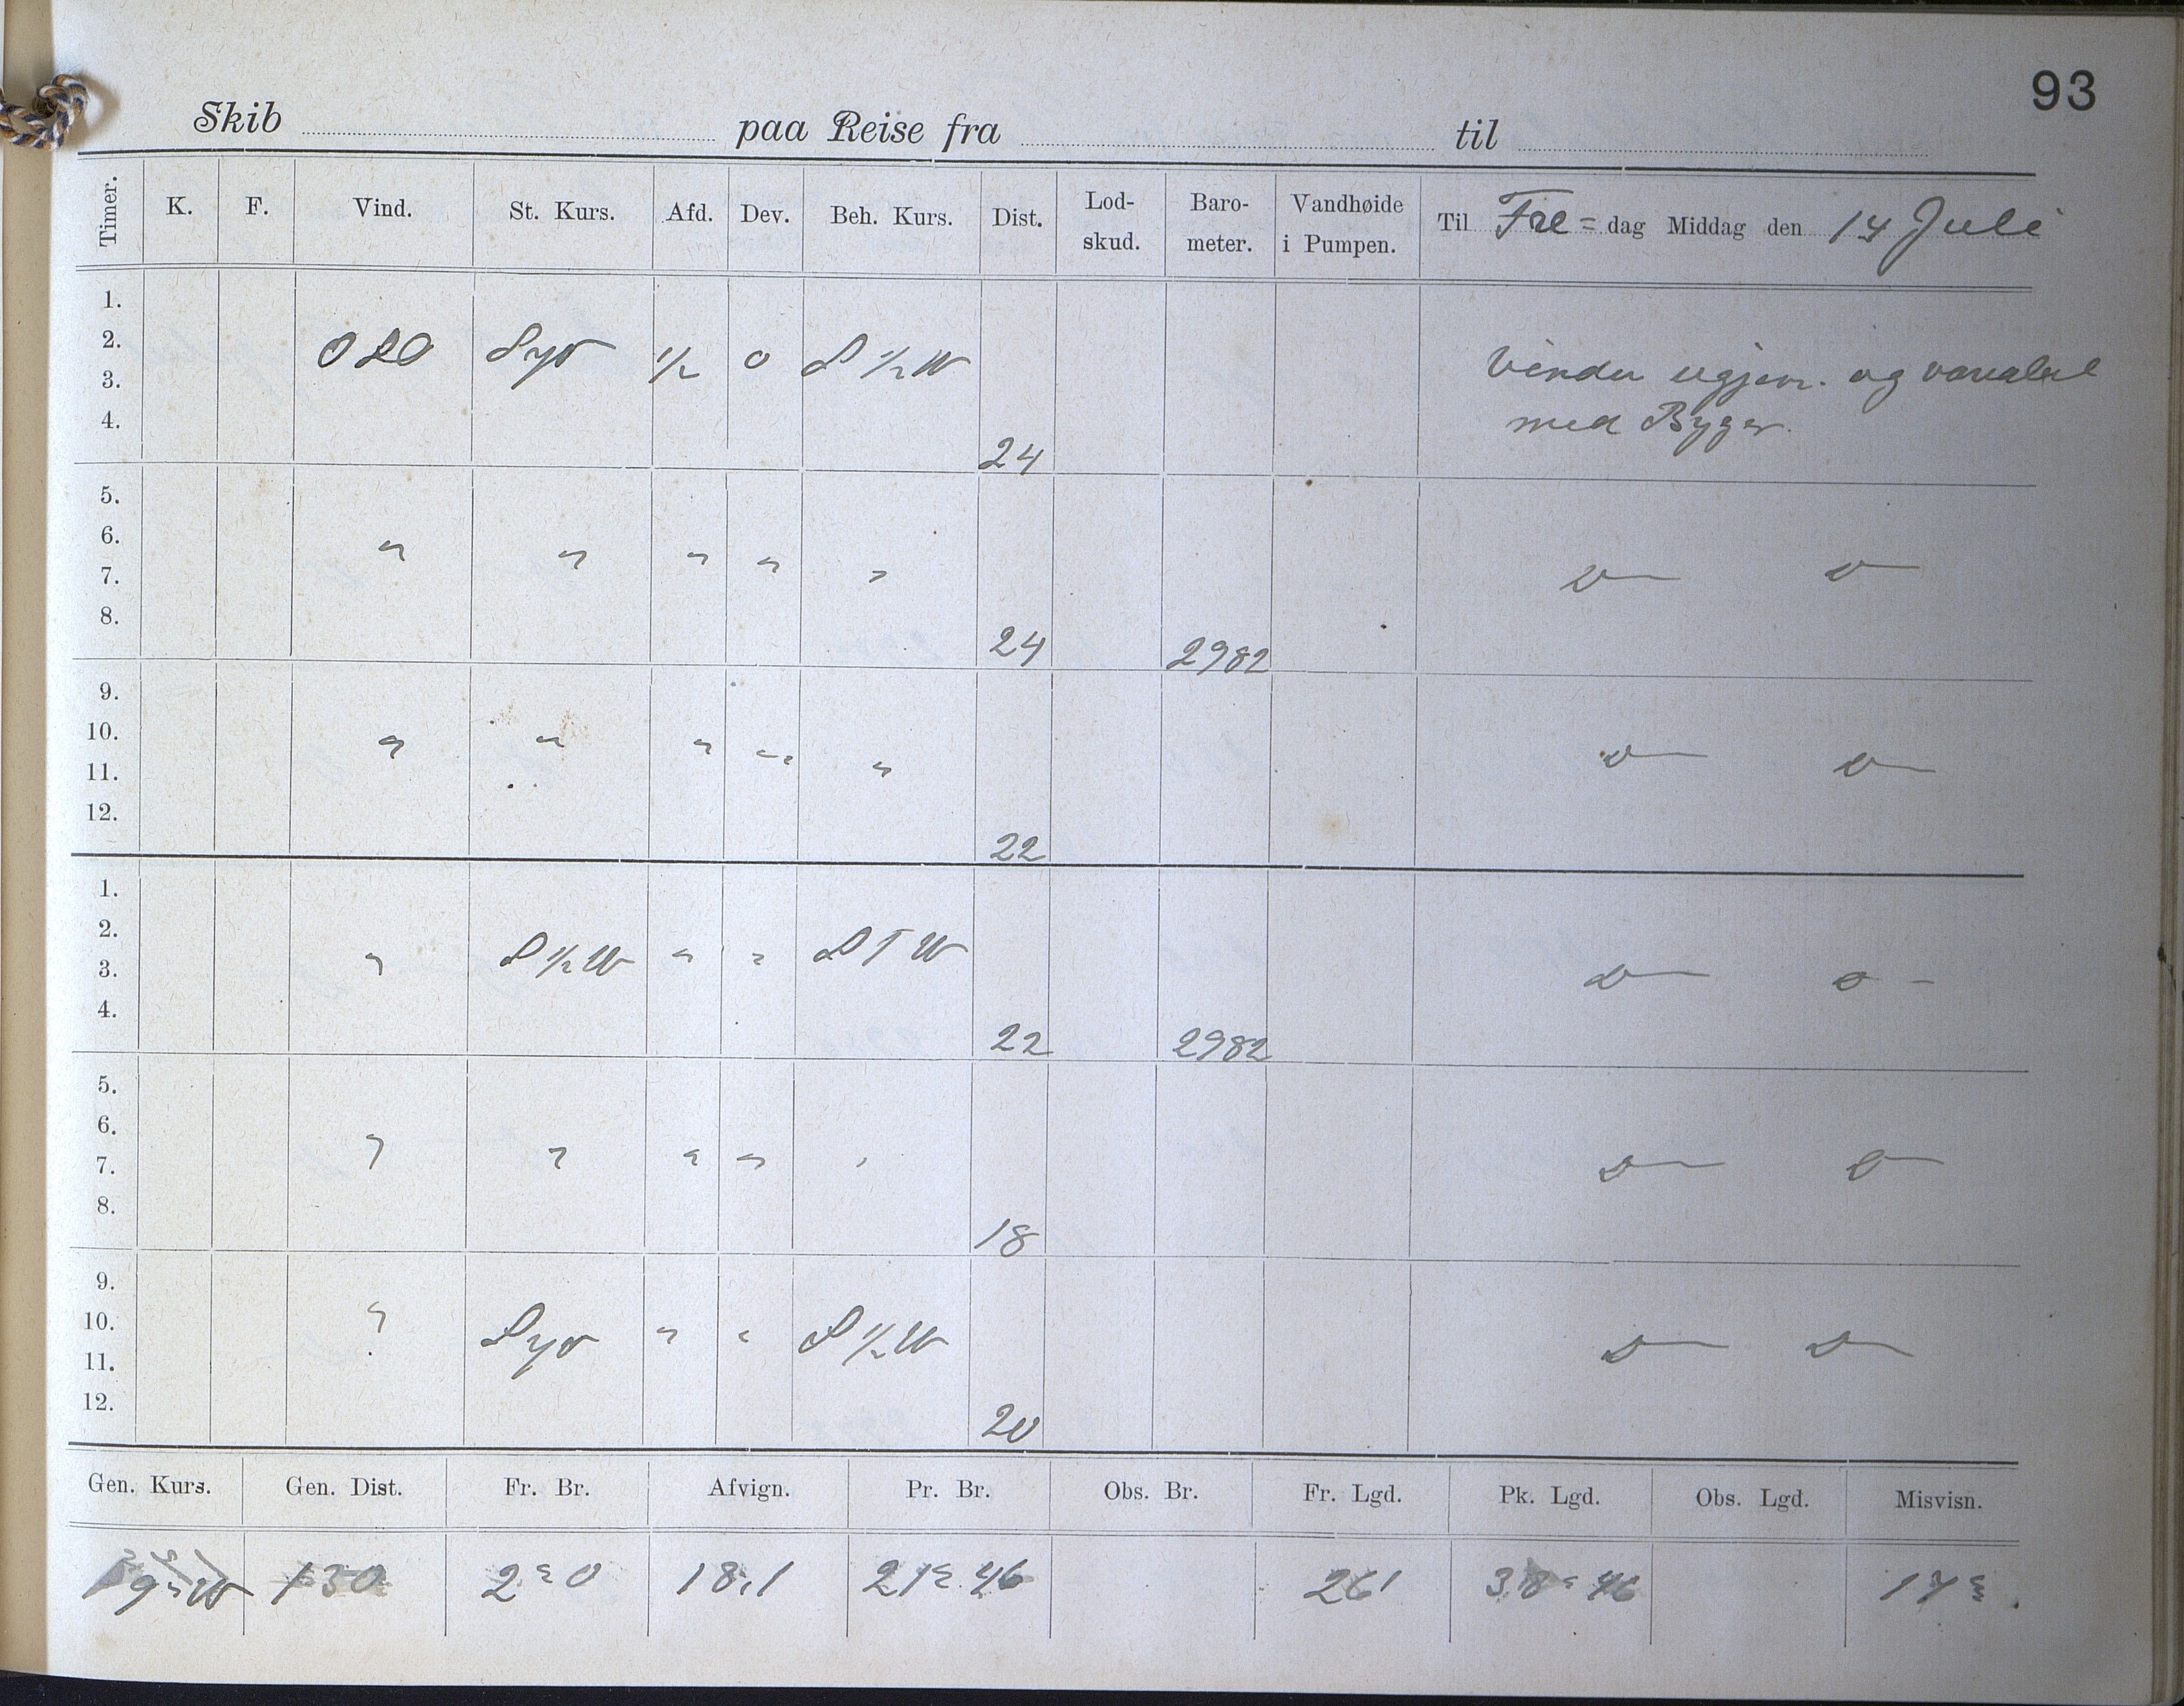 93
Skib paa Reise fra til
Timer. K. F. Vind. St. Kurs. Afd. Dev. Beh. Kurs. Dist. Lod-skud. Baro-meter. Vandhøide i Pumpen. Til Fre= dag Middag den 14 Juli
1.
2. OSO Syd 1/2 0 S 1/2 W
3. og
4. med Byger.
24
5.
6. " " " "
7. "
8.
24 2982
9.
10. " " "
11. " "
12.
22
1.
2. S 1/2 W S T W
3. " " "
4.
22 2982
5.
6.
7. " " " " "
8.
18
9.
10. " Syd " " S 1/2 W
11.
12.
20
Gen. Kurs. Gen. Dist. Fr. Br. Afvign. Pr. Br. Obs. Br. Fr. Lgd. Pk. Lgd. Obs. Lgd. Misvisn.
130 18,1 261